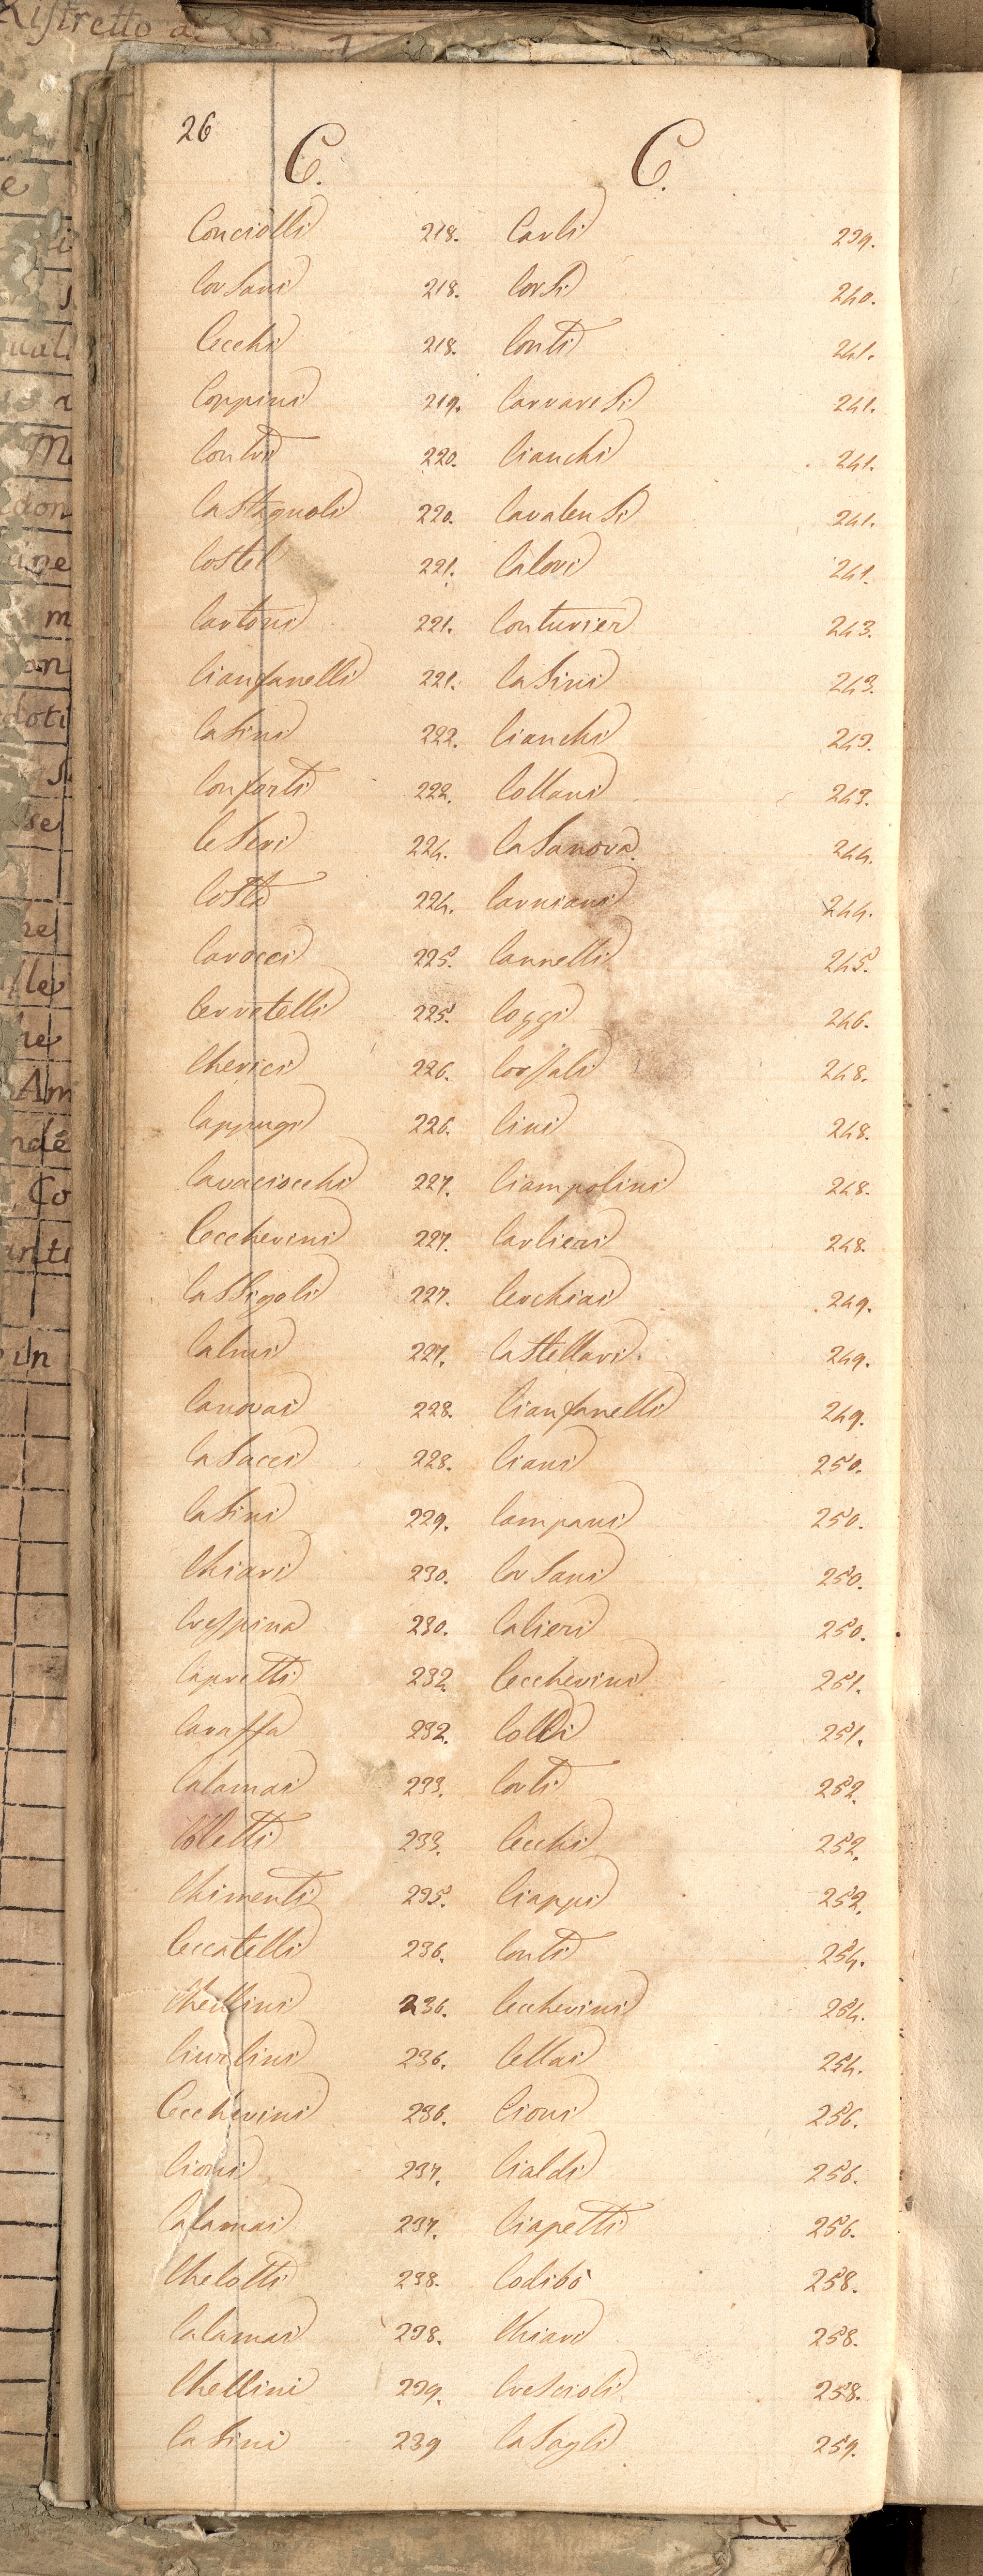 Ristretto di
26
C. C.
Conciolli 218. Carli 239.
Corsani 218. Corsi 240.
Cecchi 218. Conti 241.
Coppini 219. Carraresi 241.
Contri 220. Cianchi 241.
Castagnoli 220. Cavalensi 241.
Costel 221. Calori 241.
Cartoni 221. Conturier 243.
Cianfanelli 221. Casini 243.
Casini 222. Cianchi 243.
Conforti 222. Collani 243.
Ceseri 224. Casanova 244.
Costa 224. Carniani 244.
Carocci 225. Cannelli 245.
Cerretelli 225. Coggi 246.
Cherici 226. Corsali 248.
Cappugi 226. Cini 248.
Cavaciocchi 227. Ciampolini 248.
Ceccherini 227. Carlieri 248.
Cassigoli 227. Cerchiai 249.
Calvi 227. Castellari 249.
Canovai 228. Cianfanelli 249.
Casucci 228. Ciani 250.
Casini 229. Campani 250.
Chiari 230. Corsani 250.
Crespina 230. Calieri 250.
Capretti 232. Ceccherini 251.
Caraffa 232. Colli 251.
Calamai 233. Corti 252.
Coletti 233. Cecchi 252.
Chimenti 235. Ciappi 252.
Ceccatelli 236. Conti 254.
Chellini 236. Ceccherini 254.
Ciurlini 236. Cellai 254.
Ceccherini 236. Cioni 256.
Cioni 237. Cialdi 256.
Calamai 237. Ciapetti 256.
Chelotti 238. Codibò 258.
Calamai 238. Chiari 258.
Chellini 239. Crescioli 258.
Casini 239 Casagli 259.